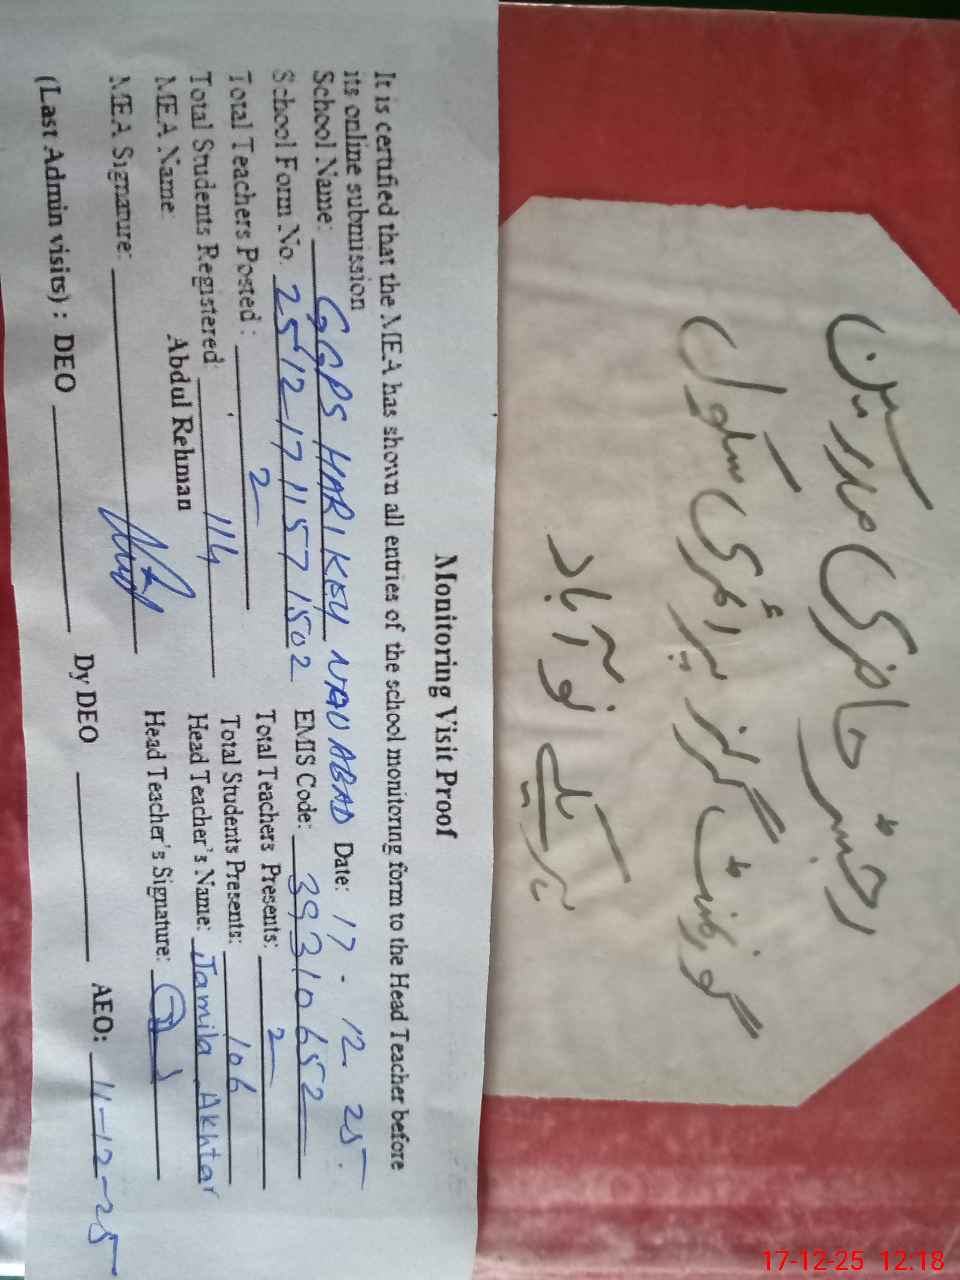 رجسٹر حاضری مدرسین
گورنمنٹ گرلز پرائمری سکول
نو آباد
Monitoring Visit Proof
It is certified that the MEA has shown all entries of the school monitoring form to the Head Teacher before
its online submission
School Name: GGPS HARI KEY NAU ABAD Date: 17-12-25
School Form No. 25121711571502 EMIS Code: 39310652
Total Teachers Posted: 2 Total Teachers Presents: 2
Total Students Registered: 114 Total Students Presents: 106
MEA Name: Abdul Rehman Head Teacher's Name: Jamila Akhtar
MEA Signature: Head Teacher's Signature:
(Last Admin visits) : DEO Dy DEO AEO: 11-12-25
17-12-25 12:18